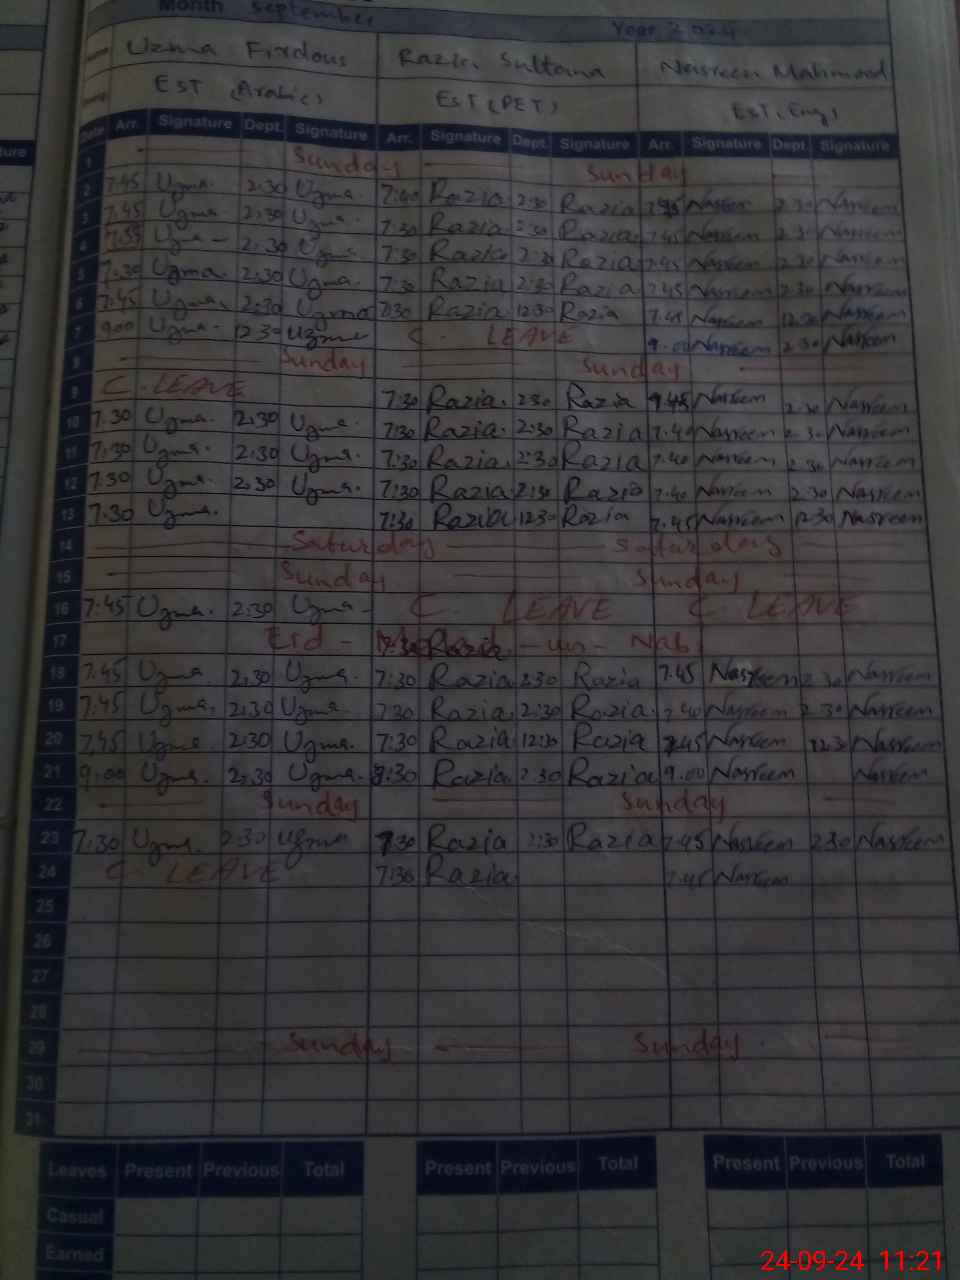 Month September Year 2024
Uzma Firdous Razia Sultana Nasreen Mahmood
EST (Arabic) EST (PET) EST, Eng)
Date Arr. Signature Dept. Signature Arr. Signature Dept. Signature Arr. Signature Dept. Signature
1 Sunday Sunday
2 7:45 Uzma. 2:30 Uzma. 7:40 Razia 2:30 Razia Nasreen 2:30 Nasreem
3 7:45 Uzma. 2:30 Uzma. 7:30 Razia 2:30 Razia 7.45 Nasreem 2.30 Nasreem
4 Uzma 2:30 Uzma. 7:30 Razia 2:30 Razia 7.45 Nasreem 2.30 Nasreem
5 7:30 Uzma. 2:30 Uzma. 7:30 Razia 2:30 Razia 7.45 Nasreem 2.30 Nasreem
6 7:45 Uzma. 2:30 Uzma 7:30 Razia 12:30 Razia 7.45 Nasreem 12.30 Nasreem
7 9:00 Uzma. 12:30 Uzma C. LEAVE 9.00 Nasreem 2.30 Nasreem
8 Sunday Sunday
9 C. LEAVE 7:30 Razia. 2:30 Razia Nasreem 2.30 Nasreem
10 7.30 Uzma. 2:30 Uzma. 7:30 Razia. 2:30 Razia 7.40 Nasreem 2.30 Nasreem
11 7:30 Uzma. 2:30 Uzma. 7:30 Razia. 2:30 Razia 7.40 Nasreem 2.30 Nasreem
12 7.30 Uzma. 2:30 Uzma. 7:30 Razia 2:30 Razia 7.40 Nasreem 2.30 Nasreem
13 7.30 Uzma. 7:30 Razia 12:30 Razia 7.45 Nasreem 12.30 Nasreem
14 Saturday Saturday
15 Sunday Sunday
16 7:45 Uzma. 2:30 Uzma C. LEAVE C. LEAVE
17 Eid - Razia - un - Nabi
18 7:45 Uzma 2:30 Uzma. 7:30 Razia 2:30 Razia 7.45 Nasreem 2.30 Nasreem
19 7.45 Uzma. 2:30 Uzma. 7:30 Razia. 2:30 Razia. 7.40 Nasreem 2.30 Nasreem
20 7.45 Uzma 2:30 Uzma. 7:30 Razia 12:30 Razia 7.45 Nasreem 12.30 Nasreem
21 9:00 Uzma. 2:30 Uzma. 8:30 Razia. 2:30 Razia 9.00 Nasreem Nasreem
22 Sunday Sunday
23 7:30 Uzma. 2:30 Uzma 7:30 Razia 2:30 Razia 7.45 Nasreem 2.30 Nasreem
24 C. LEAVE 7:30 Razia. 7.45 Nasreem
25
26
27
28
29 Sunday Sunday
30
31
Leaves Present Previous Total Present Previous Total Present Previous Total
Casual
Earned
24-09-24 11:21